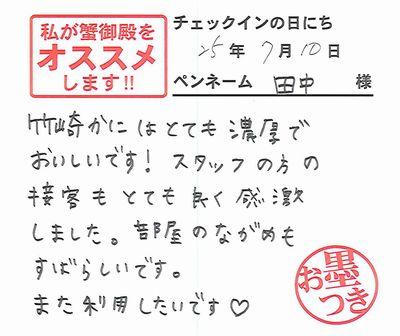 私が蟹御殿を
オススメ
します!!
チェックインの日にち
25年7月10日
ペンネーム 田中 様
竹崎かにはとても濃厚で
おいしいです! スタッフの方の
接客もとても良く感激
しました。部屋のながめも
すばらしいです。
また利用したいです♡
お墨つき